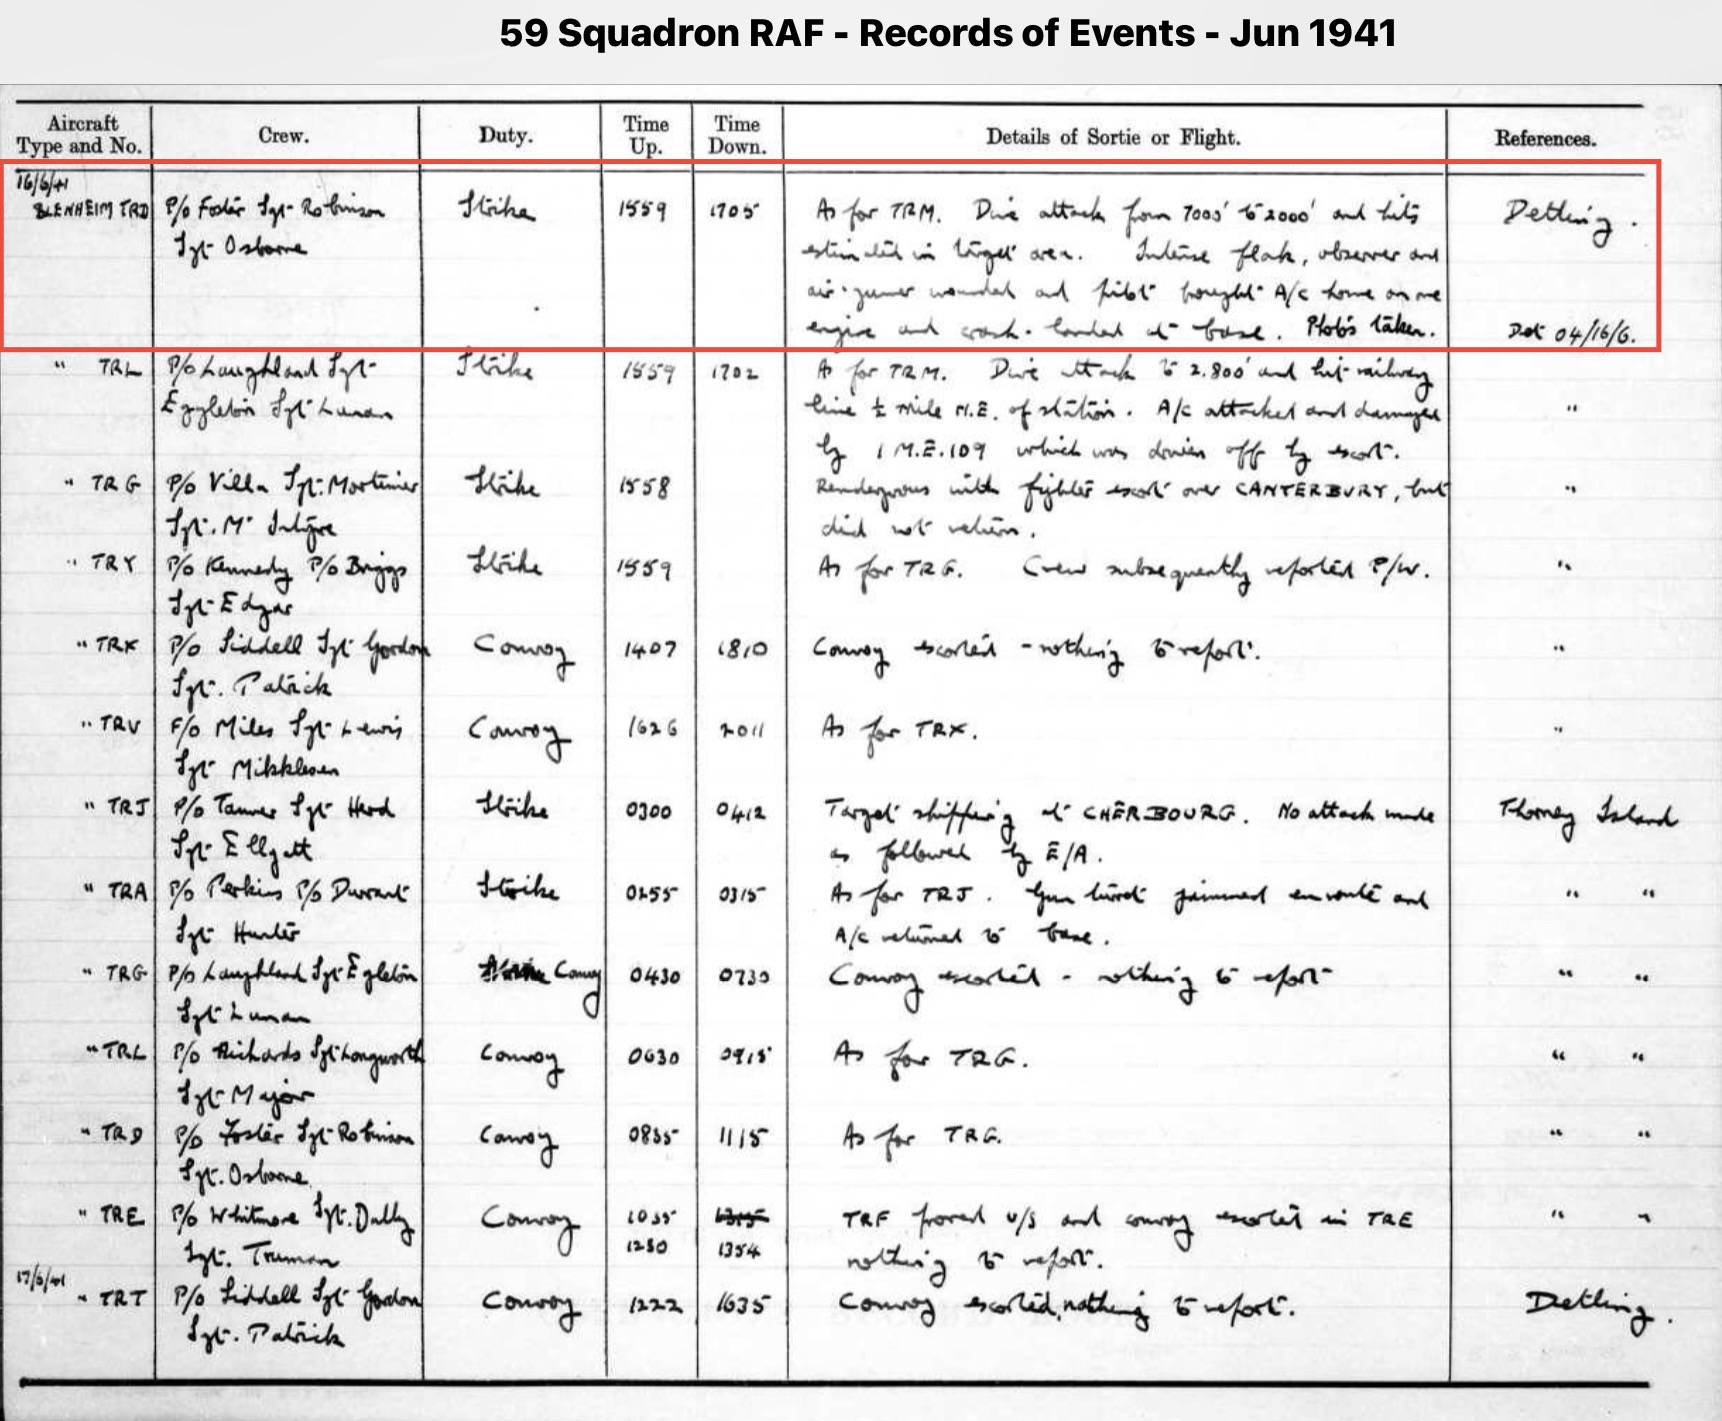 59 Squadron RAF - Records of Events - Jun 1941
Aircraft Type and No. Crew. Duty. Time Up. Time Down. Details of Sortie or Flight. References.
16/6/41
BLENHEIM TRD P/O Foster Sgt Robinson Strike 1559 1705 As for TRM. Dive attack from 7000' to 2000' and hits Detling.
Sgt Osborne estimated in target area. Intense flak, observer and
air-gunner wounded and pilot brought A/C home on one
engine and crash-landed at base. Photos taken. Det 04/16/6.
" TRL P/O Laughland Sgt Strike 1559 1702 As for TRM. Dive attack to 2.800' and hit railway
Eggleton Sgt Lunan line ½ mile N.E. of station. A/C attacked and damaged "
by 1 M.E.109 which was driven off by escort.
" TRG P/O Villa Sgt. Mortimer Strike 1558 Rendezvous with fighter escort over CANTERBURY, but "
Sgt. Mc Intyre did not return.
" TRY P/O Kennedy P/O Briggs Strike 1559 As for TRG. Crew subsequently reported P/W. "
Sgt Edgar
" TRX P/O Liddell Sgt Gordon Convoy 1407 1810 Convoy escorted - nothing to report. "
Sgt. Patrick
" TRV F/O Miles Sgt Lewis Convoy 1626 2011 As for TRX. "
Sgt Mikklesen
" TRJ P/O Tanner Sgt Strike 0300 0412 Target shipping at CHERBOURG. No attack made Thorney Island
Sgt Ellyatt as followed by E/A.
" TRA P/O Perkins P/O Durrant Strike 0255 0315 As for TRJ. Gun turret jammed en route and " "
Sgt Hunter A/C returned to base.
" TRG P/O Laughland Sgt Egleton Convoy 0430 0730 Convoy escorted - nothing to report " "
Sgt Lunan
" TRL P/O Richards Sgt Longworth Convoy 0630 0915 As for TRG. " "
Sgt Major
" TRD P/O Foster Sgt Robinson Convoy 0835 1115 As for TRG. " "
Sgt. Osborne.
" TRE P/O Whitmore Sgt. Dally Convoy 1035 1315 TRF proved u/s and convoy escorted in TRE " "
Sgt. Truman 1250 1354 nothing to report.
17/6/41
" TRT P/O Liddell Sgt Gordon Convoy 1222 1635 Convoy escorted, nothing to report. Detling.
Sgt. Patrick